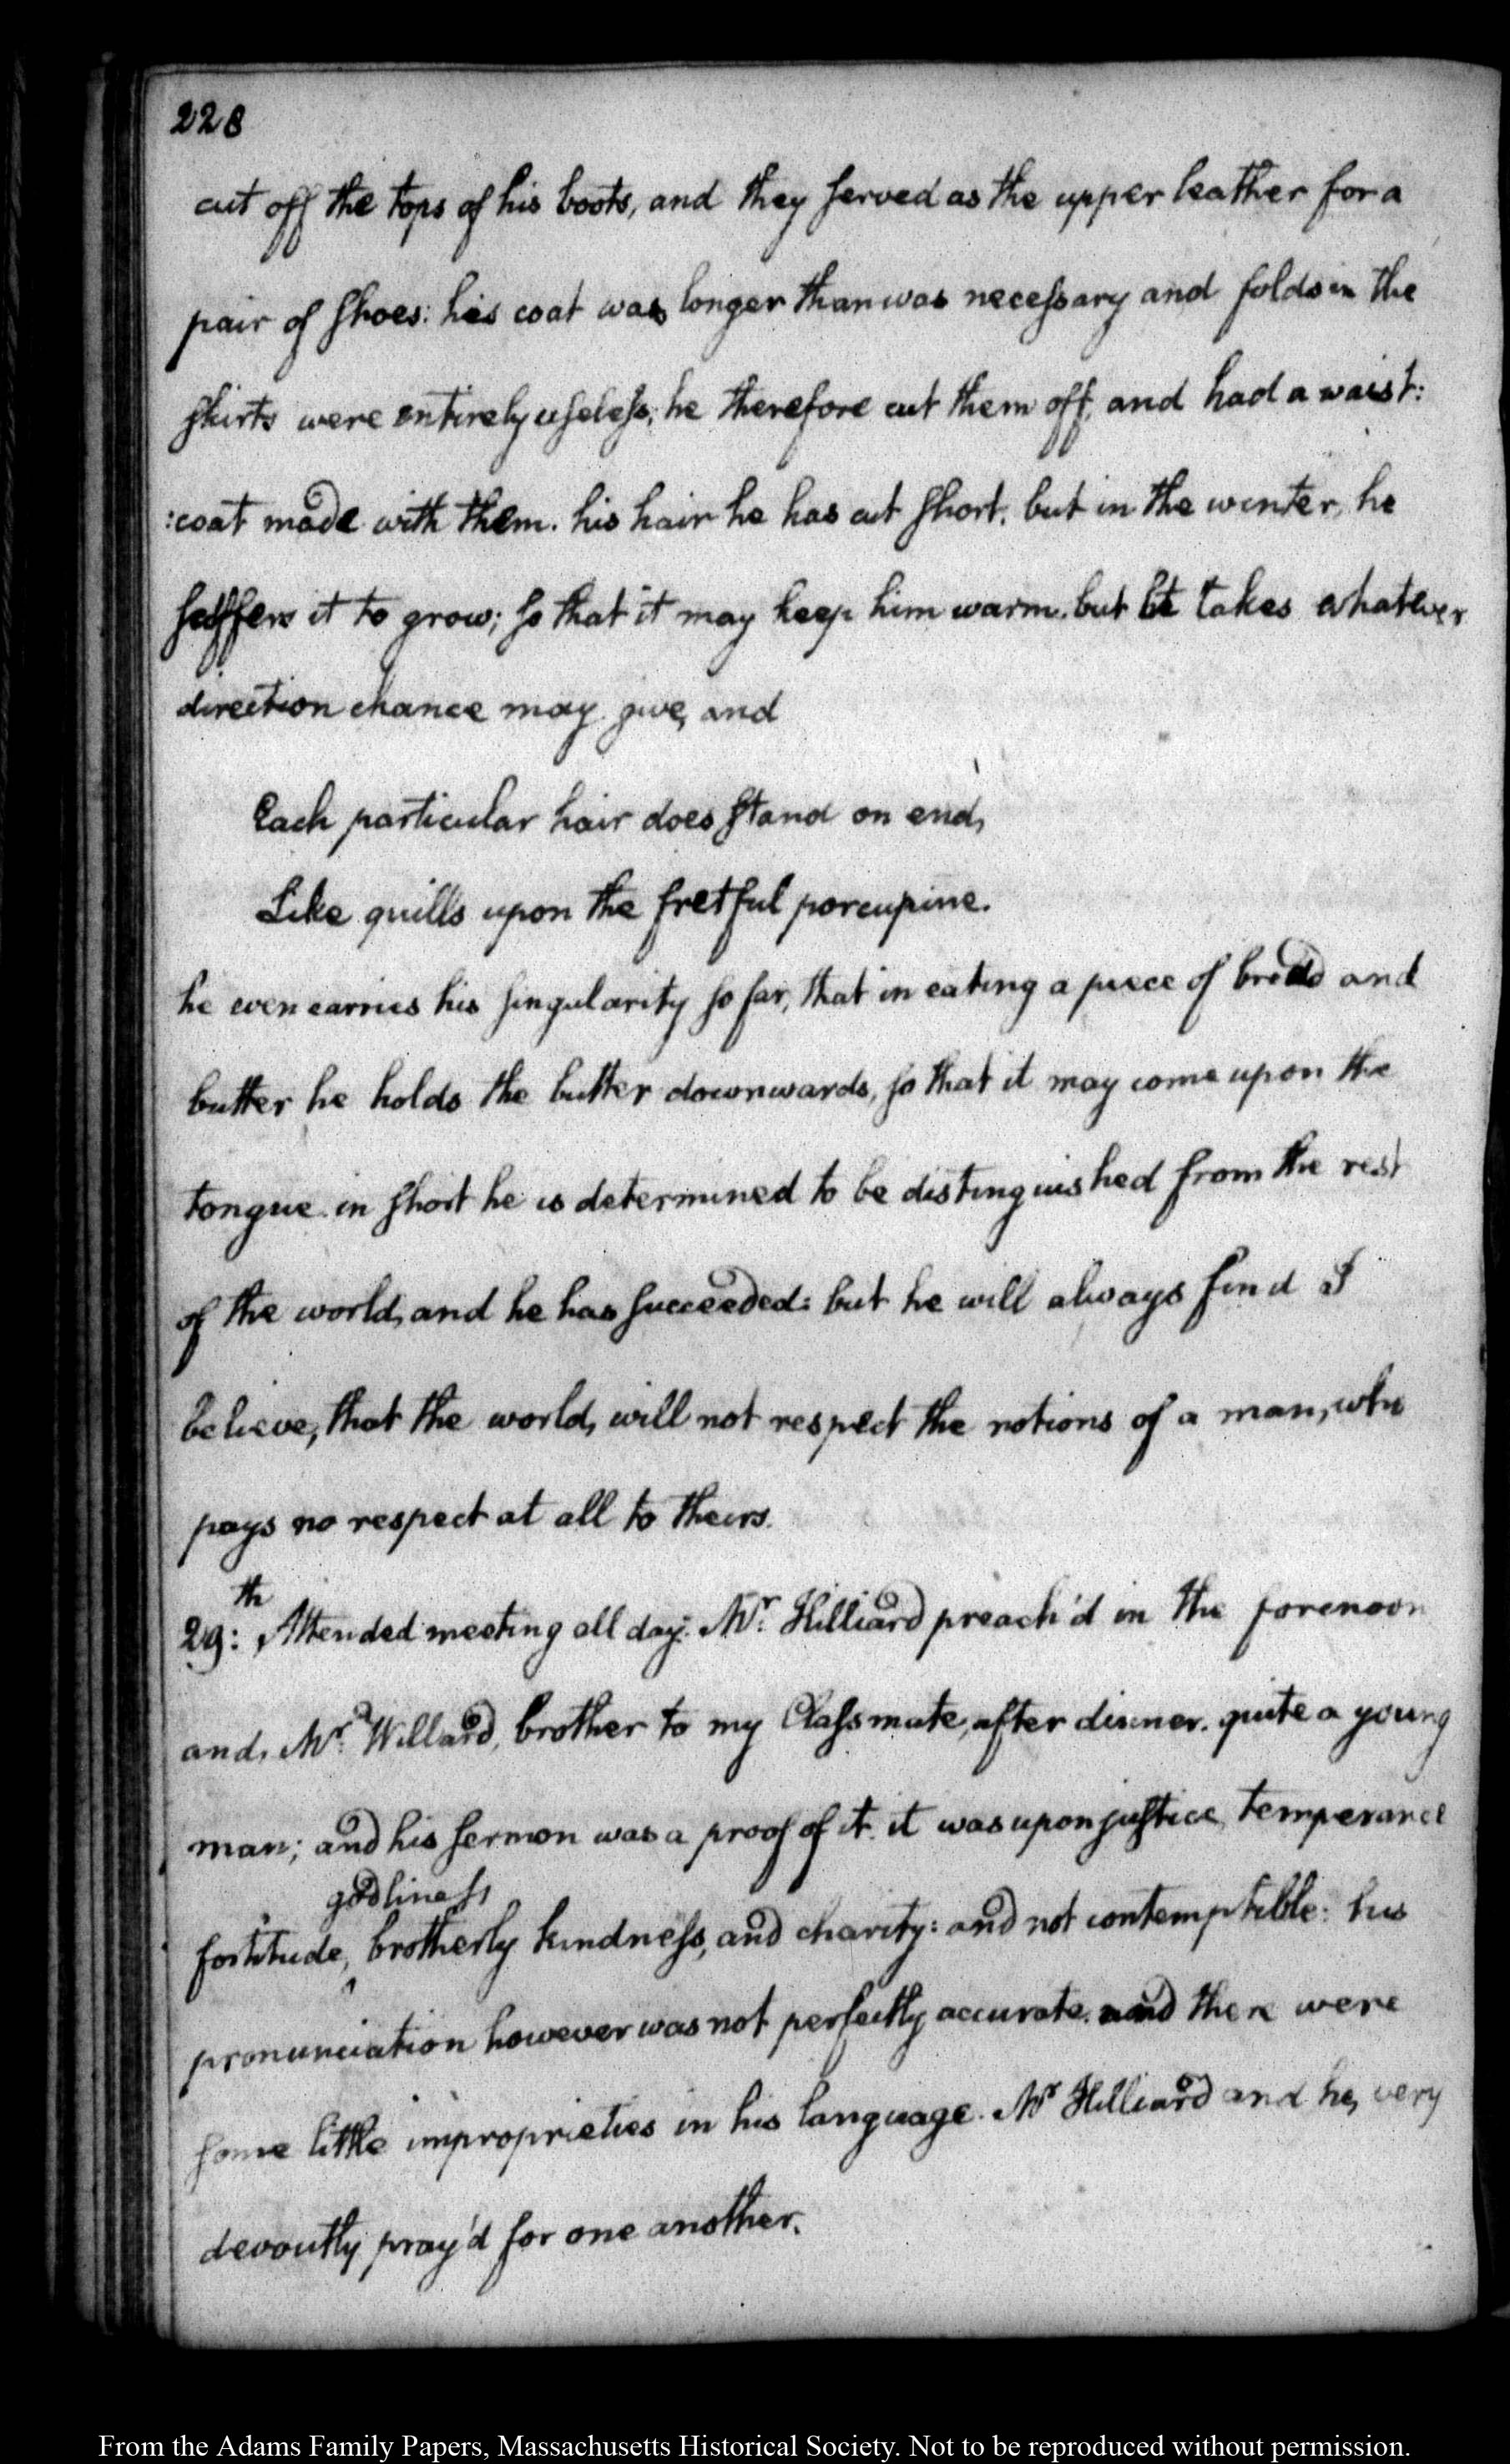 228
cut off the tops of his boots, and they served as the upper leather for a
pair of shoes: his coat was longer than was necessary and folds in the
skirts were entirely useless; he therefore cut them off, and had a waist:
:coat made with them. his hair he has cut short. but in the winter, he
suffers it to grow; so that it may keep him warm. but it takes whatever
direction chance may give, and
Each particular hair does stand on end,
Like quills upon the fretful porcupine.
he even carries his singularity so far, that in eating a piece of bread and
butter he holds the butter downwards, so that it may come upon the
tongue. in short he is determined to be distinguished from the rest
of the world, and he has succeeded: but he will always find I
believe, that the world, will not respect the notions of a man, who
pays no respect at all to theirs.
29:th Attended meeting all day. Mr: Hilliard preach'd in the forenoon
and, Mr: Willard, brother to my Classmate, after dinner. quite a young
man; and his sermon was a proof of it. it was upon justice, temperance
godliness,
fortitude, ^ brotherly kindness, and charity: and not contemptible: his
pronunciation however was not perfectly accurate. and there were
some little improprieties in his language. Mr Hilliard and he, very
devoutly pray'd for one another.
From the Adams Family Papers, Massachusetts Historical Society. Not to be reproduced without permission.